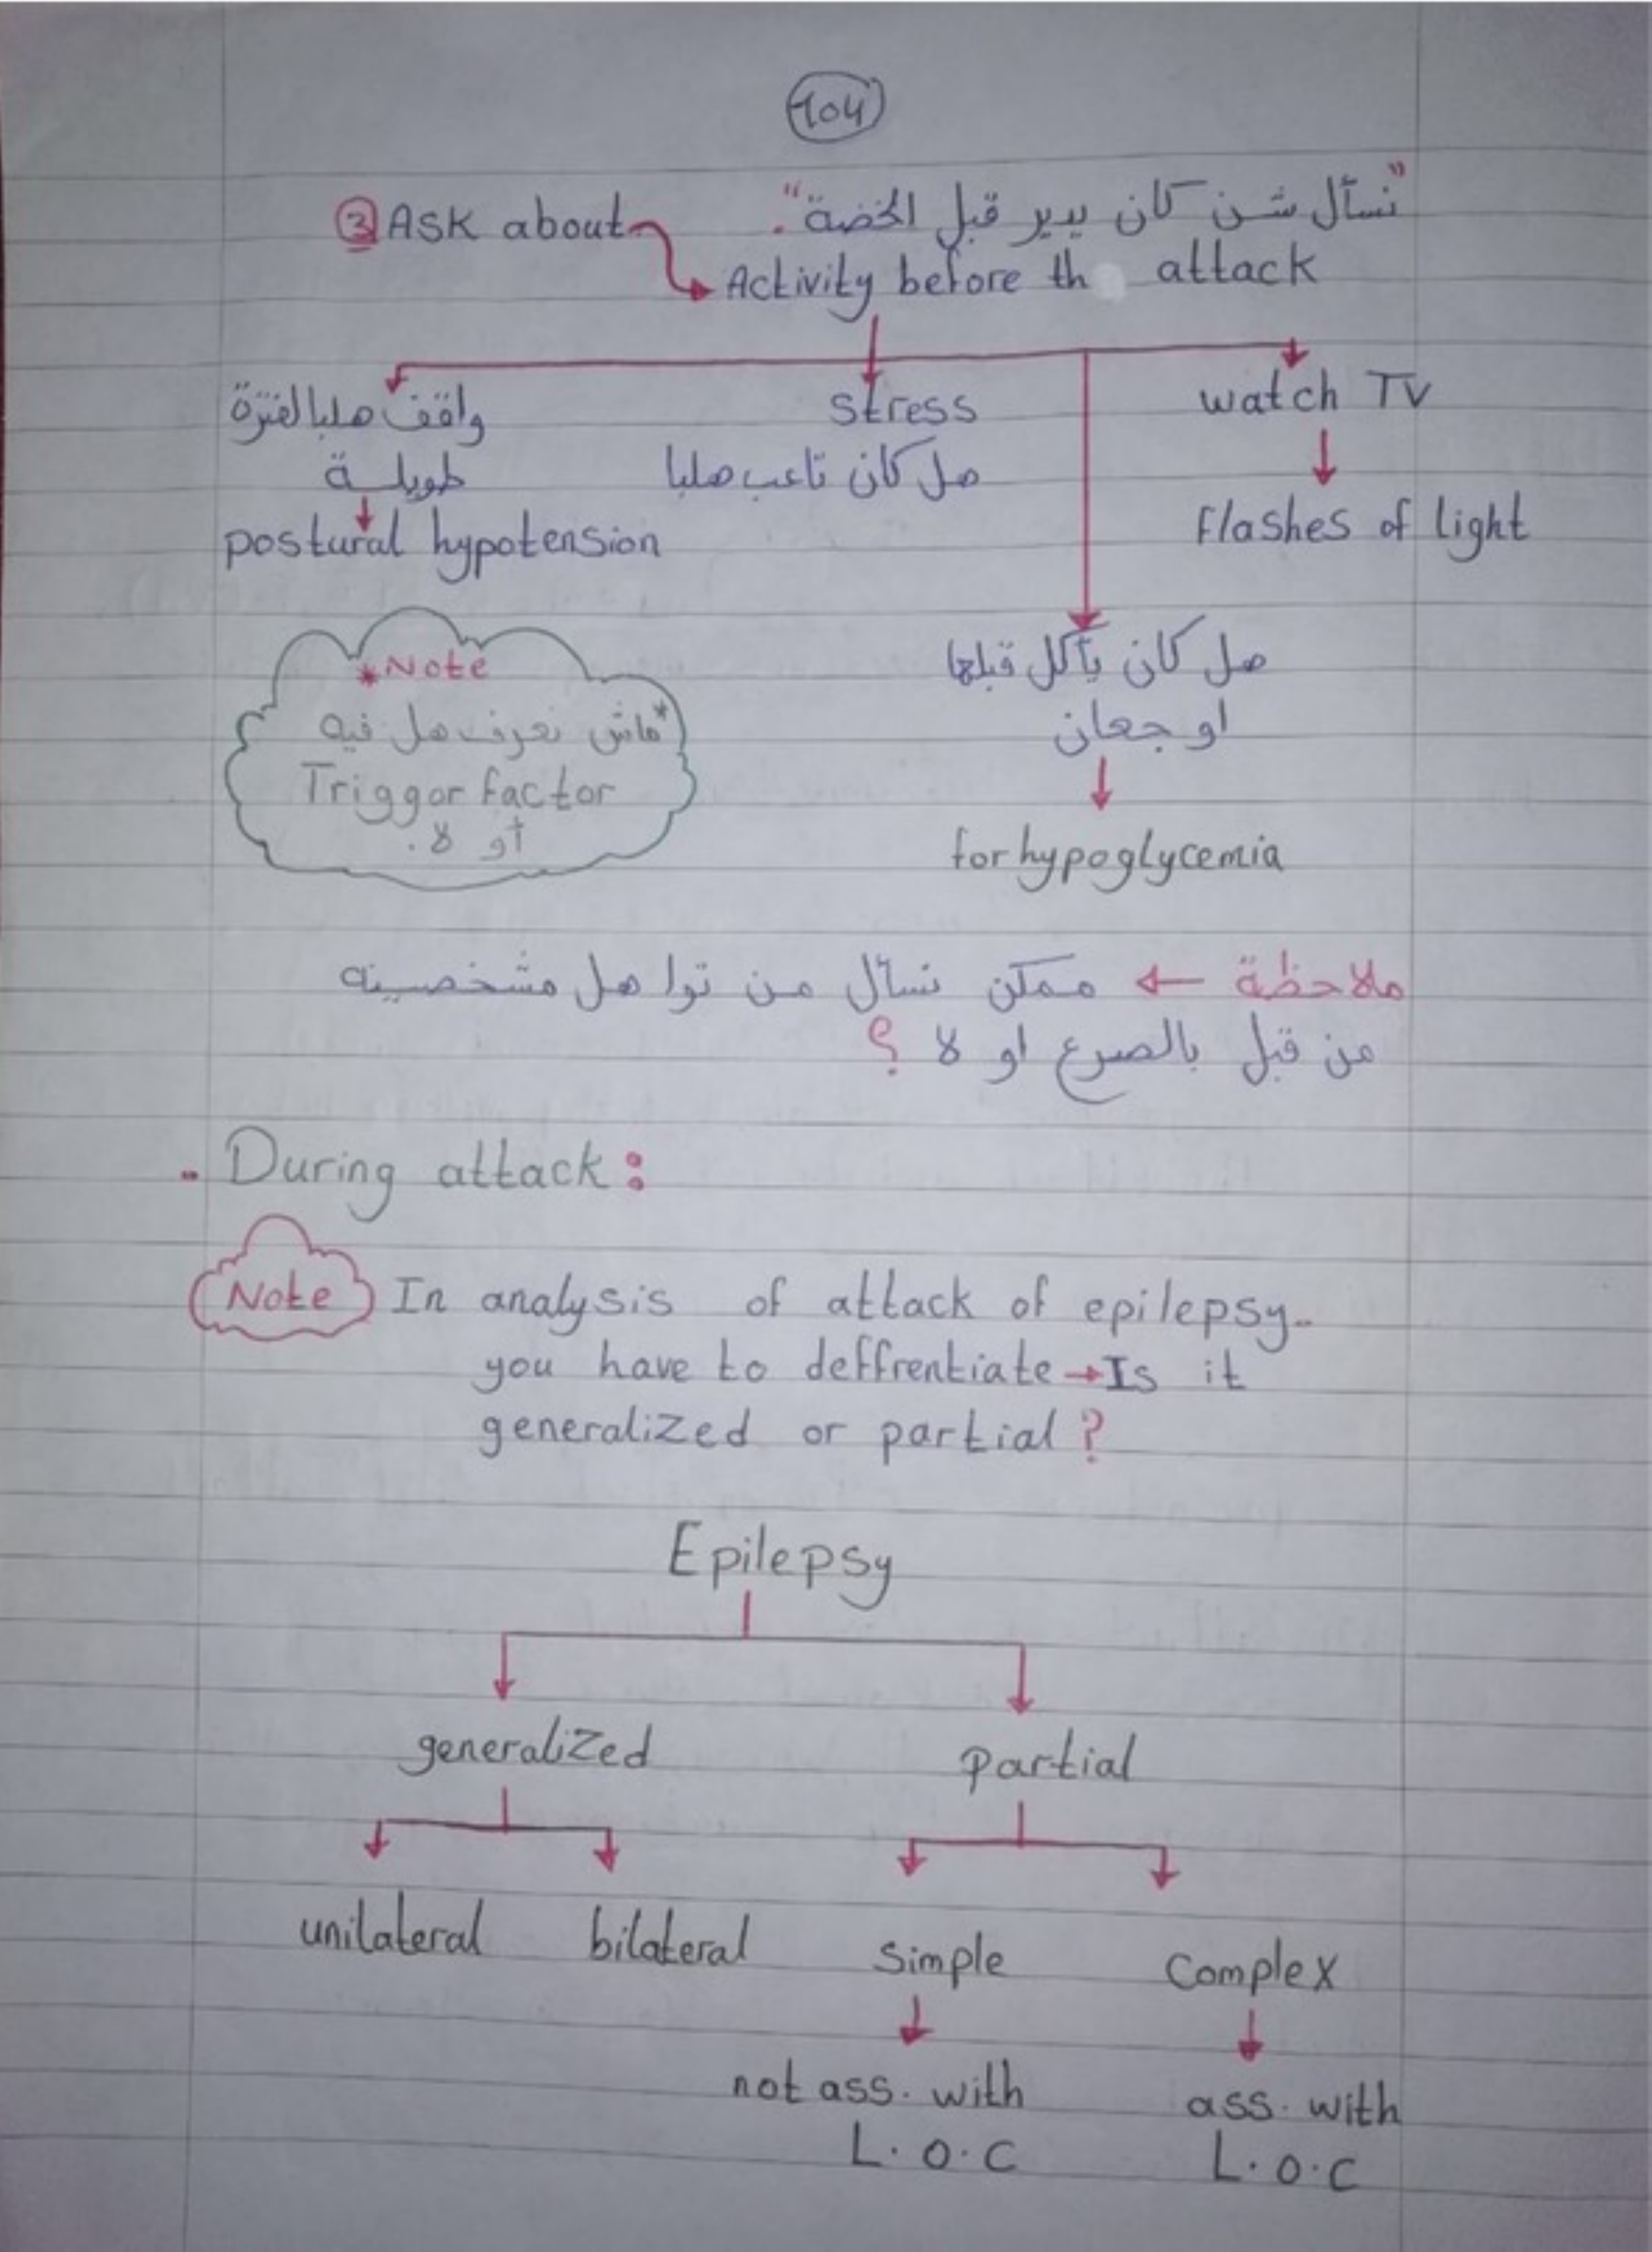 104
③ Ask about
"نسأل شن كان يدير قبل الخضة".
Activity before th attack
واقف هلبا لفترة
طويلة
postural hypotension
stress
هل كان تاعب هلبا
watch TV
Flashes of light
هل كان يأكل قبلها
او جعان
for hypoglycemia
*Note
نعرف هل فيه
Triggor factor
أو لا.
ملاحظة ← ممكن نسأل من توا هل مشخصينه
من قبل بالصرع او لا ؟
- During attack:
Note In analysis of attack of epilepsy-
you have to deffrentiate → Is it
generalized or partial ?
Epilepsy
generalized partial
unilateral bilateral simple complex
not ass. with ass. with
L.O.C L.O.C